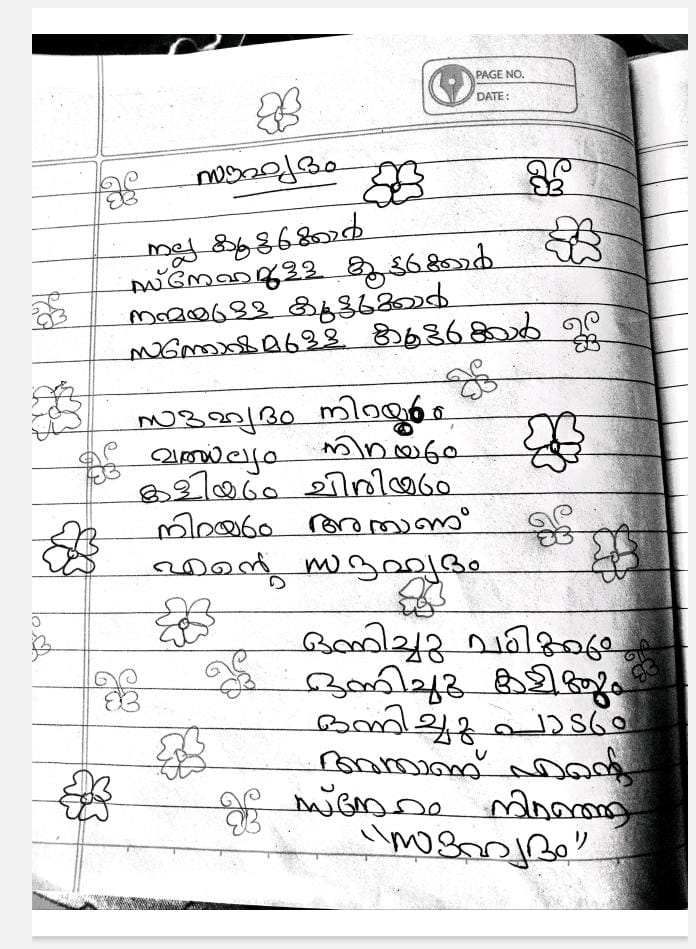 PAGE NO.
DATE:
സൗഹൃദം
നല്ല കൂട്ടുക്കാർ
സ്നേഹമുള്ള കൂട്ടുക്കാർ
നന്മയുള്ള കൂട്ടുക്കാർ
സന്തോഷമുള്ള കൂട്ടുക്കാർ
സൗഹൃദം നിറയും
വത്സല്യം നിറയും
കളിയും ചിരിയും
നിറയും അതാണ്
എന്റെ സൗഹൃദം
ഒന്നിച്ചു പഠിക്കും
ഒന്നിച്ചു കളിക്കും
ഒന്നിച്ചു പാടും
അതാണ് എന്റെ
സ്നേഹം നിറഞ്ഞ
"സൗഹൃദം"